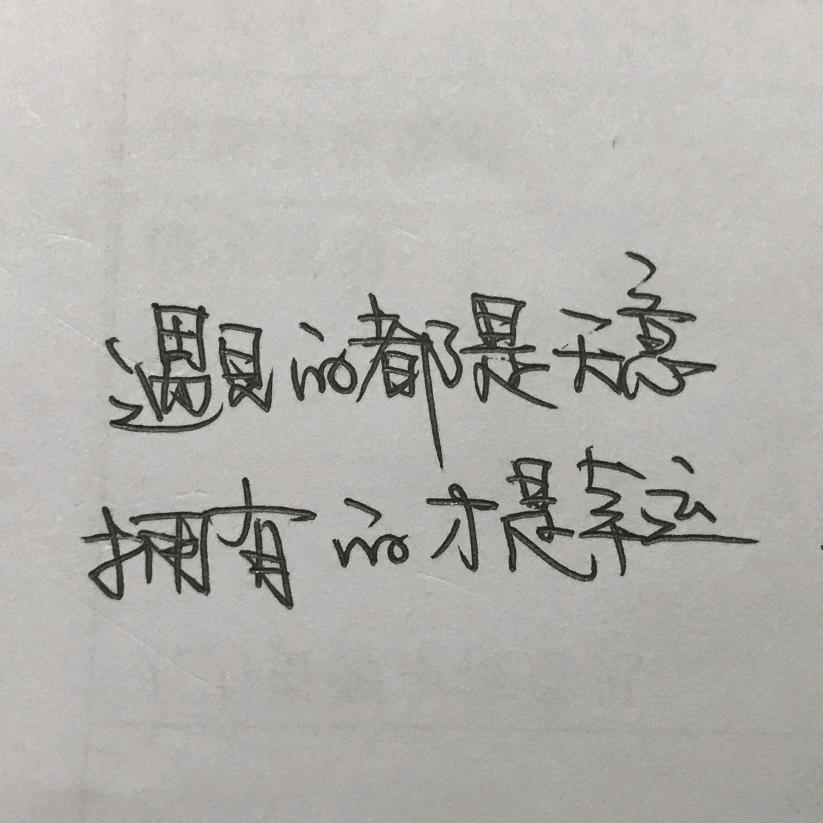 遇见的都是天意
拥有的才是幸运